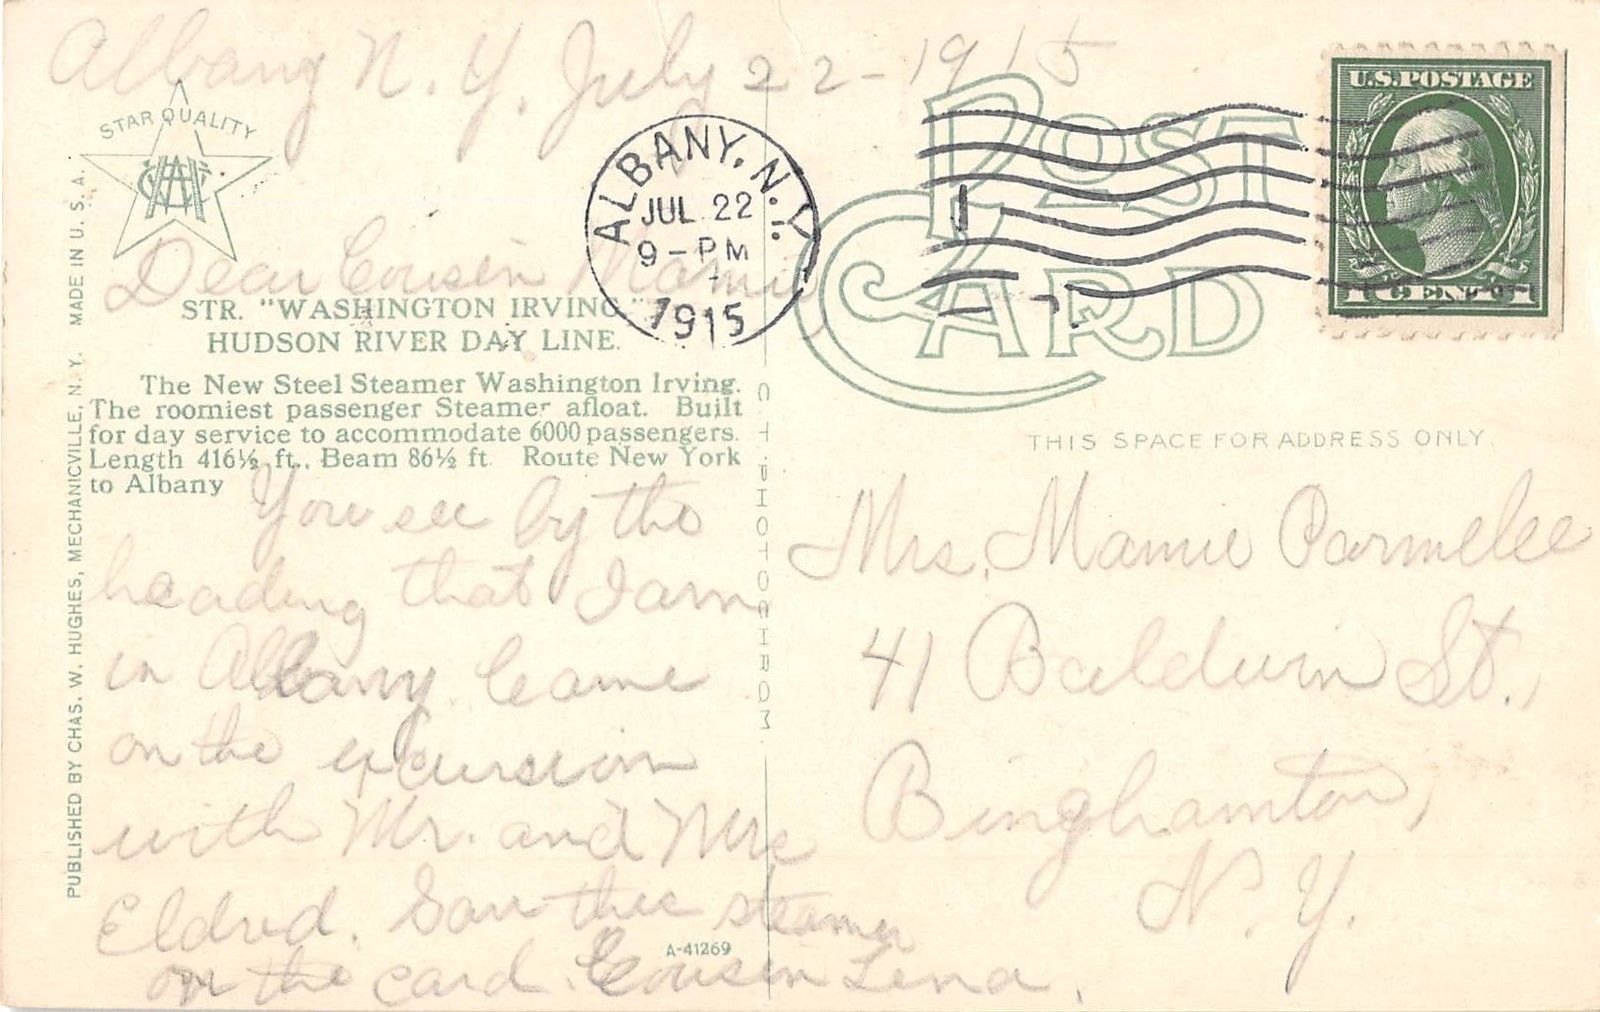 Albany N. Y. July 22-1915
STAR QUALITY
U.S. POSTAGE
POST CARD
ALBANY, N.Y.
JUL 22
9-PM
1915
Dear Cousin Mamie
STR. "WASHINGTON IRVING"
HUDSON RIVER DAY LINE.
The New Steel Steamer Washington Irving.
The roomiest passenger Steamer afloat. Built
for day service to accommodate 6000 passengers.
Length 416½ ft., Beam 86½ ft. Route New York
to Albany
You see by the
heading that I am
in Albany. Came
on the excursion
with Mr. and Mrs
Eldred. Saw this steamer
on the card. Cousin Lena.
A-41269
PUBLISHED BY CHAS. W. HUGHES, MECHANICVILLE, N. Y. MADE IN U. S. A.
C.T. PHOTOCHROM
THIS SPACE FOR ADDRESS ONLY.
Mrs. Mamie Parmelee
41 Baldwin St.,
Binghamton,
N. Y.